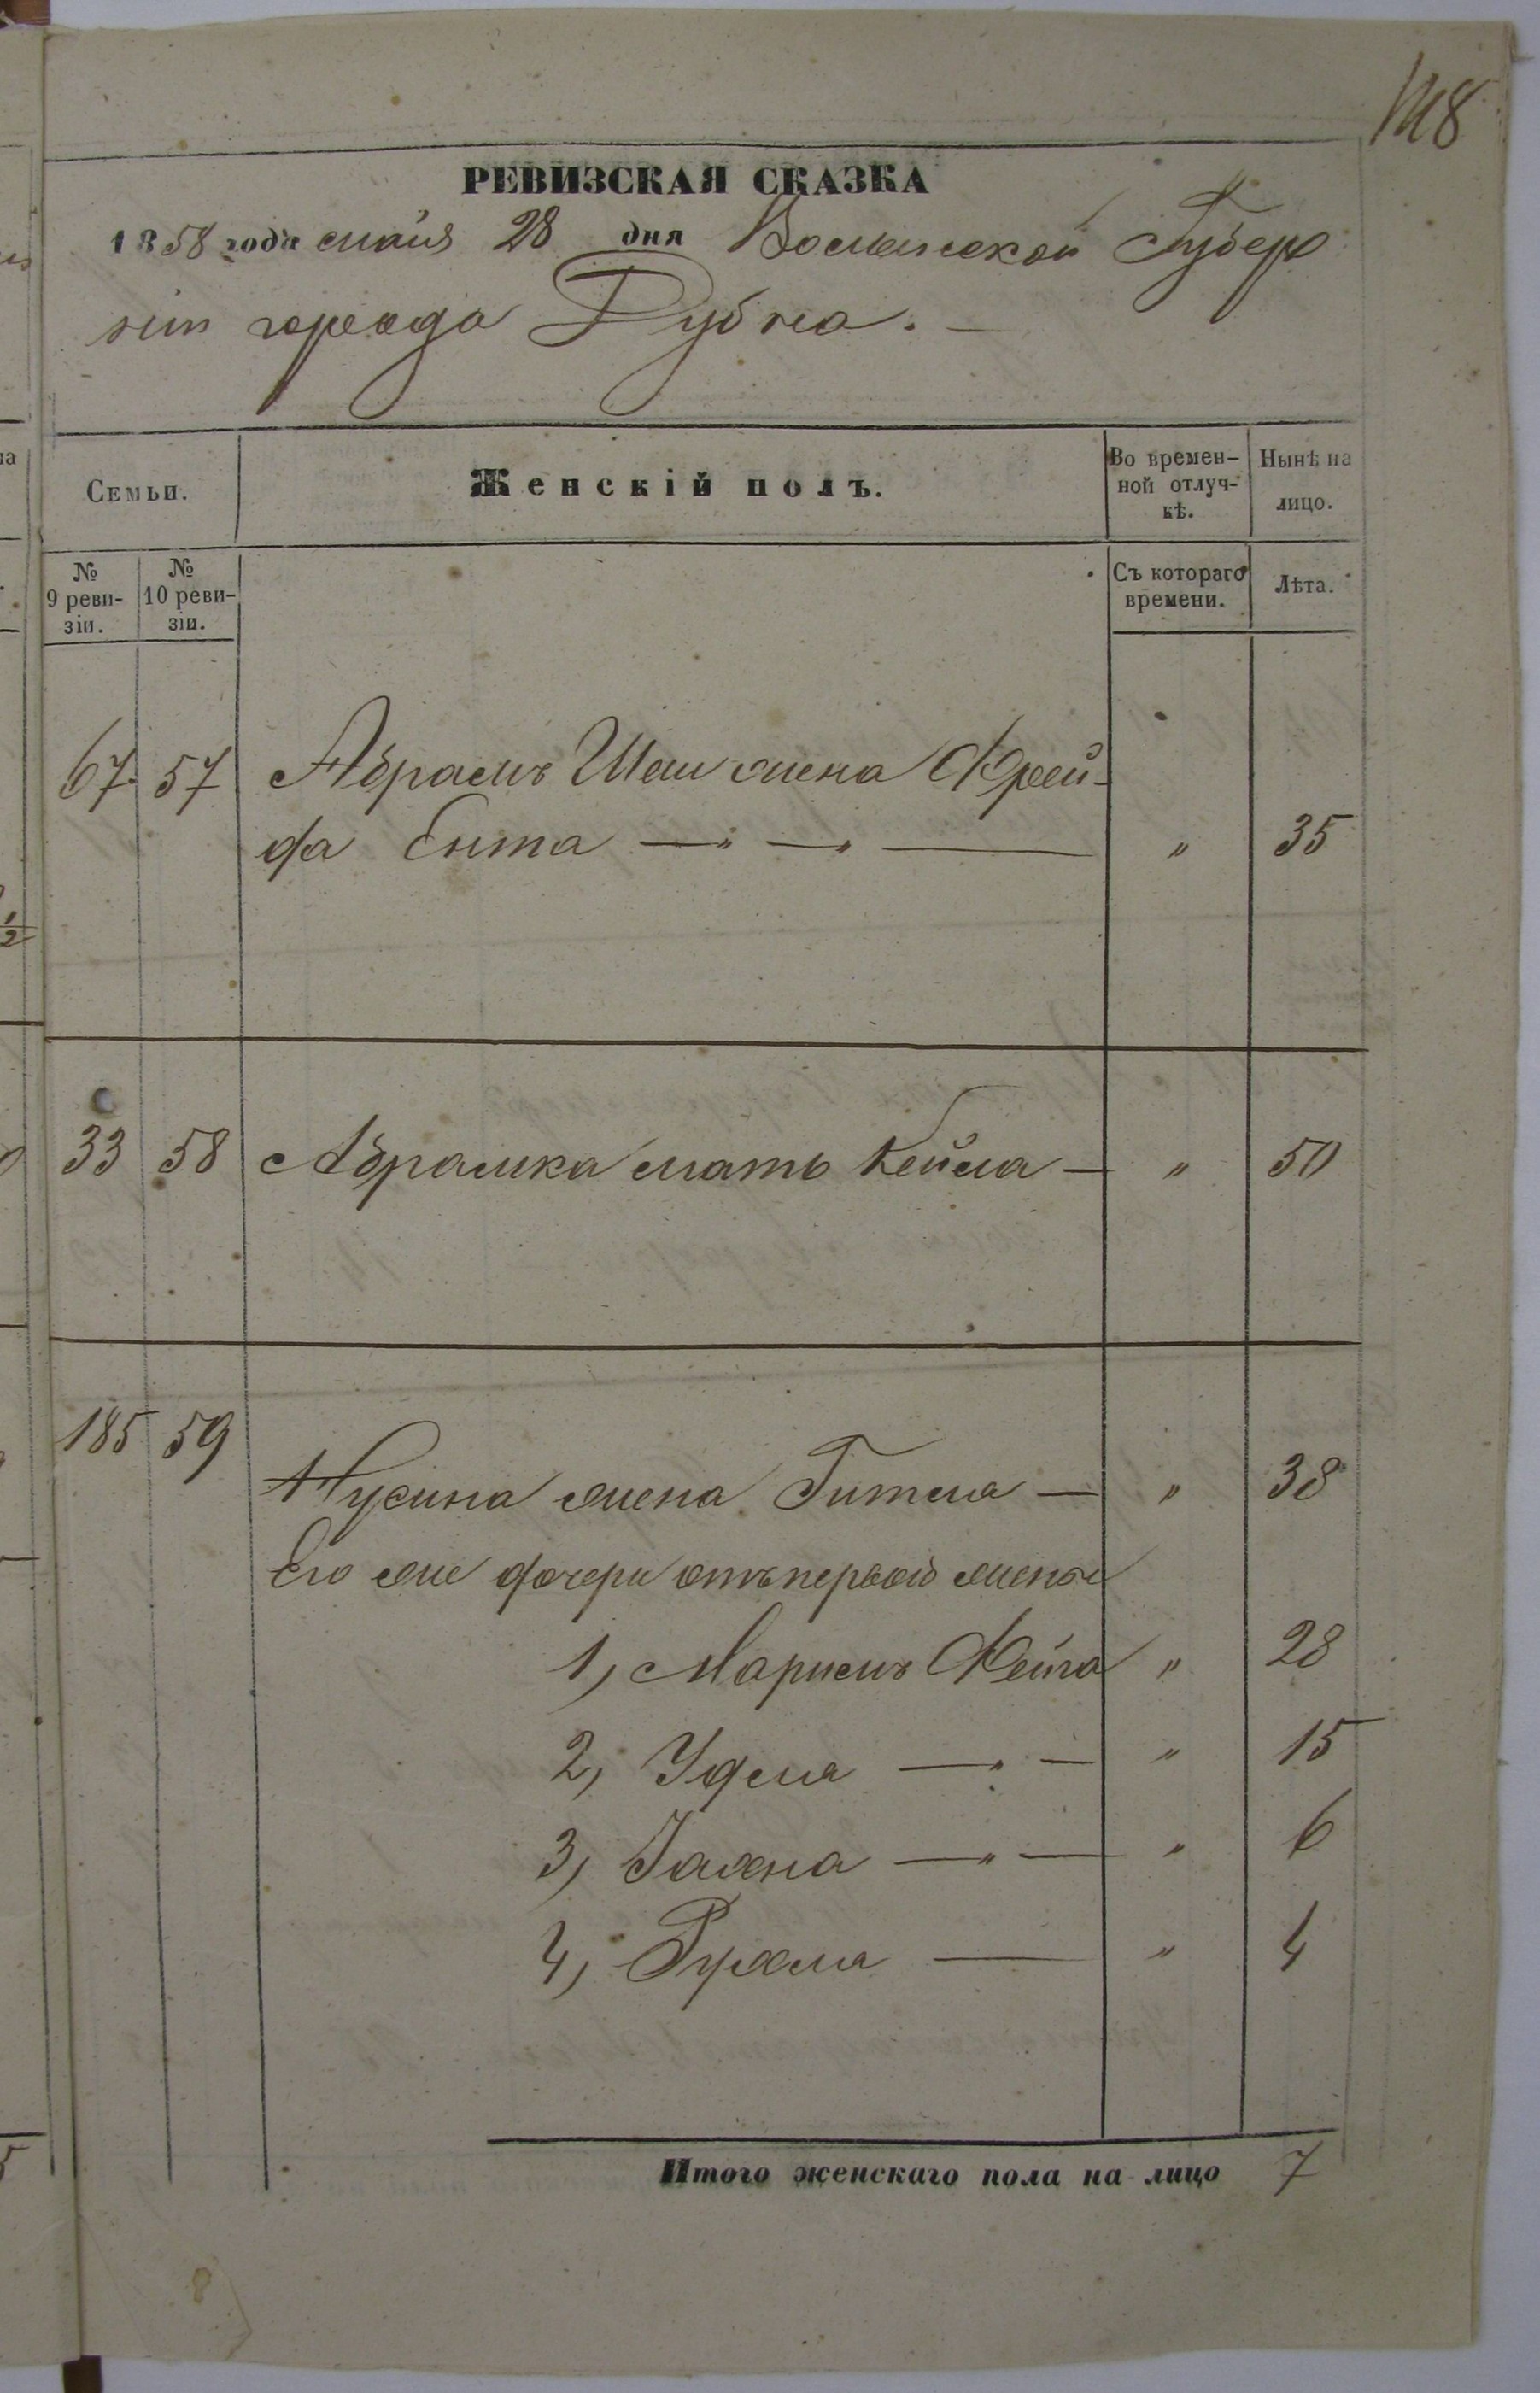 118
РЕВИЗСКАЯ СКАЗКА
1858 года мая 28 дня Волынской Губер
нiи города Дубна. —
Семьи. Женскiй полъ. Во времен-ной отлуч-кѣ. Нынѣ на лицо.
№ 9 реви-зiи. № 10 реви-зiи. Съ котораго времени. Лѣта.
67 57 Абрамъ Шаи жена Фрей-
да Ента — " — " — " 35
33 58 Абрамка мать Кейла — " 50
185 59
Нусина жена Гитля — " 38
Его же дочери отъ первой жены
1, Марiемъ Фейга " 28
2, Удля — " — " 15
3, Хана — " — " 6
4, Рухля — " 4
Итого женскаго пола на лицо 7